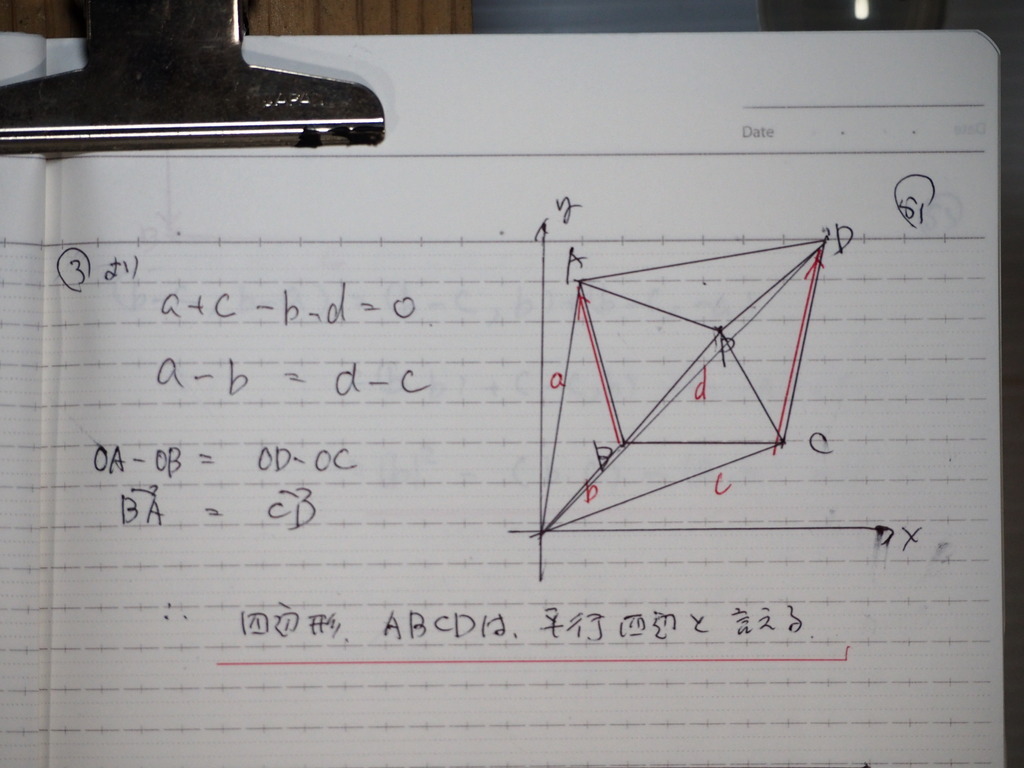 Date
61
③より
a+c-b-d=0
a-b = d-c
OA-OB = OD-OC
BA = CD
∴ 四辺形、ABCDは、平行四辺と言える
y
A
D
P
a
d
B
C
b
c
x